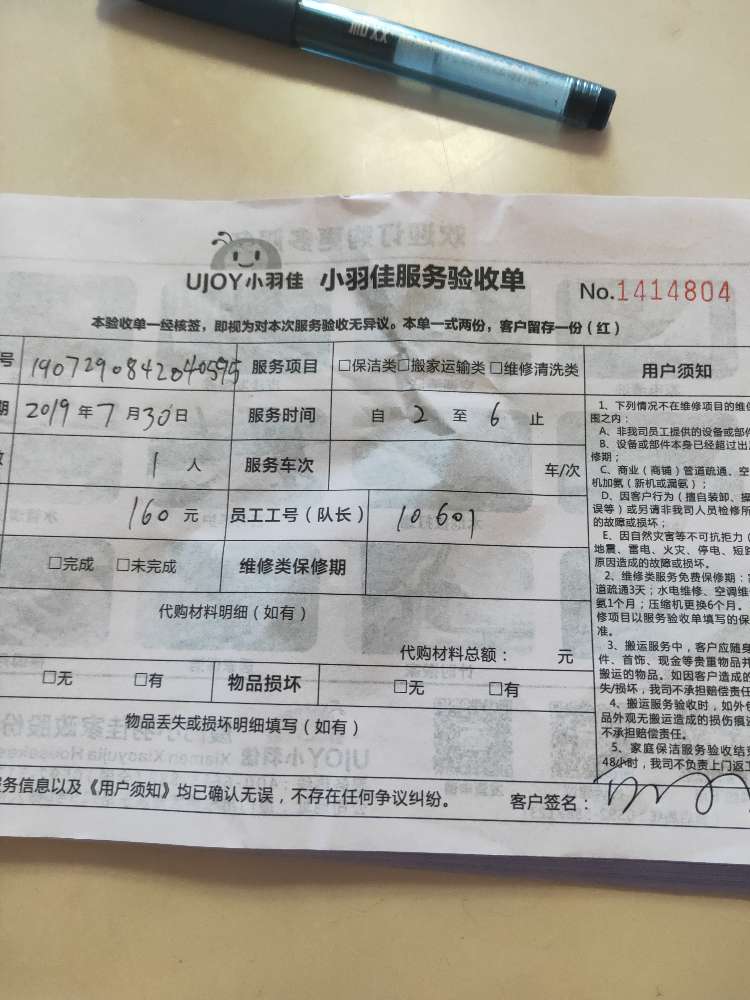 UJOY小羽佳 小羽佳服务验收单 No.1414804
本验收单一经核签，即视为对本次服务验收无异议。本单一式两份，客户留存一份（红）
号 19072908420405 服务项目 □保洁类□搬家运输类□维修清洗类 用户须知
期 2019年7月30日 服务时间 自 2 至 6 止
1人 服务车次 车/次
160元 员工工号（队长） 10601
□完成 □未完成 维修类保修期
代购材料明细（如有）
代购材料总额： 元
□无 □有 物品损坏 □无 □有
物品丢失或损坏明细填写（如有）
务信息以及《用户须知》均已确认无误，不存在任何争议纠纷。 客户签名：
1、下列情况不在维修项目的维
围之内：
A、非我司员工提供的设备或部
B、设备或部件本身已经超过出
修期；
C、商业（商铺）管道疏通、空
机加氨（新机或漏氨）；
D、因客户行为（擅自装卸、操
误等）或另请非我司人员检修所
的故障或损坏；
E、因自然灾害等不可抗拒力（
地震、雷电、火灾、停电、短
原因造成的故障或损坏。
2、维修类服务免费保修期：
道疏通3天；水电维修、空调维
氨1个月；压缩机更换6个月。
修项目以服务验收单填写的保
准。
3、搬运服务中，客户应随身
件、首饰、现金等贵重物品
搬运的物品。如因客户造成的
失/损坏，我司不承担赔偿责任
4、搬运服务验收时，如外
品外观无搬运造成的损伤痕
不承担赔偿责任。
5、家庭保洁服务验收结
48小时，我司不负责上门返